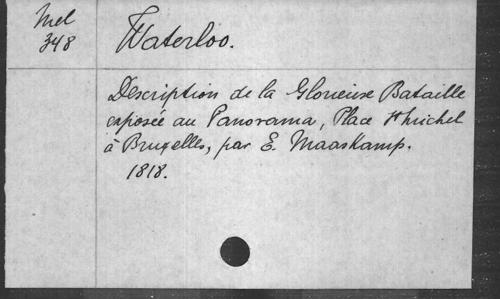 Mel
348
Waterloo.
Description de la Glorieuse Bataille
exposée au Panorama, Place St Michel
à Bruxelles, par E. Maaskamp.
1818.